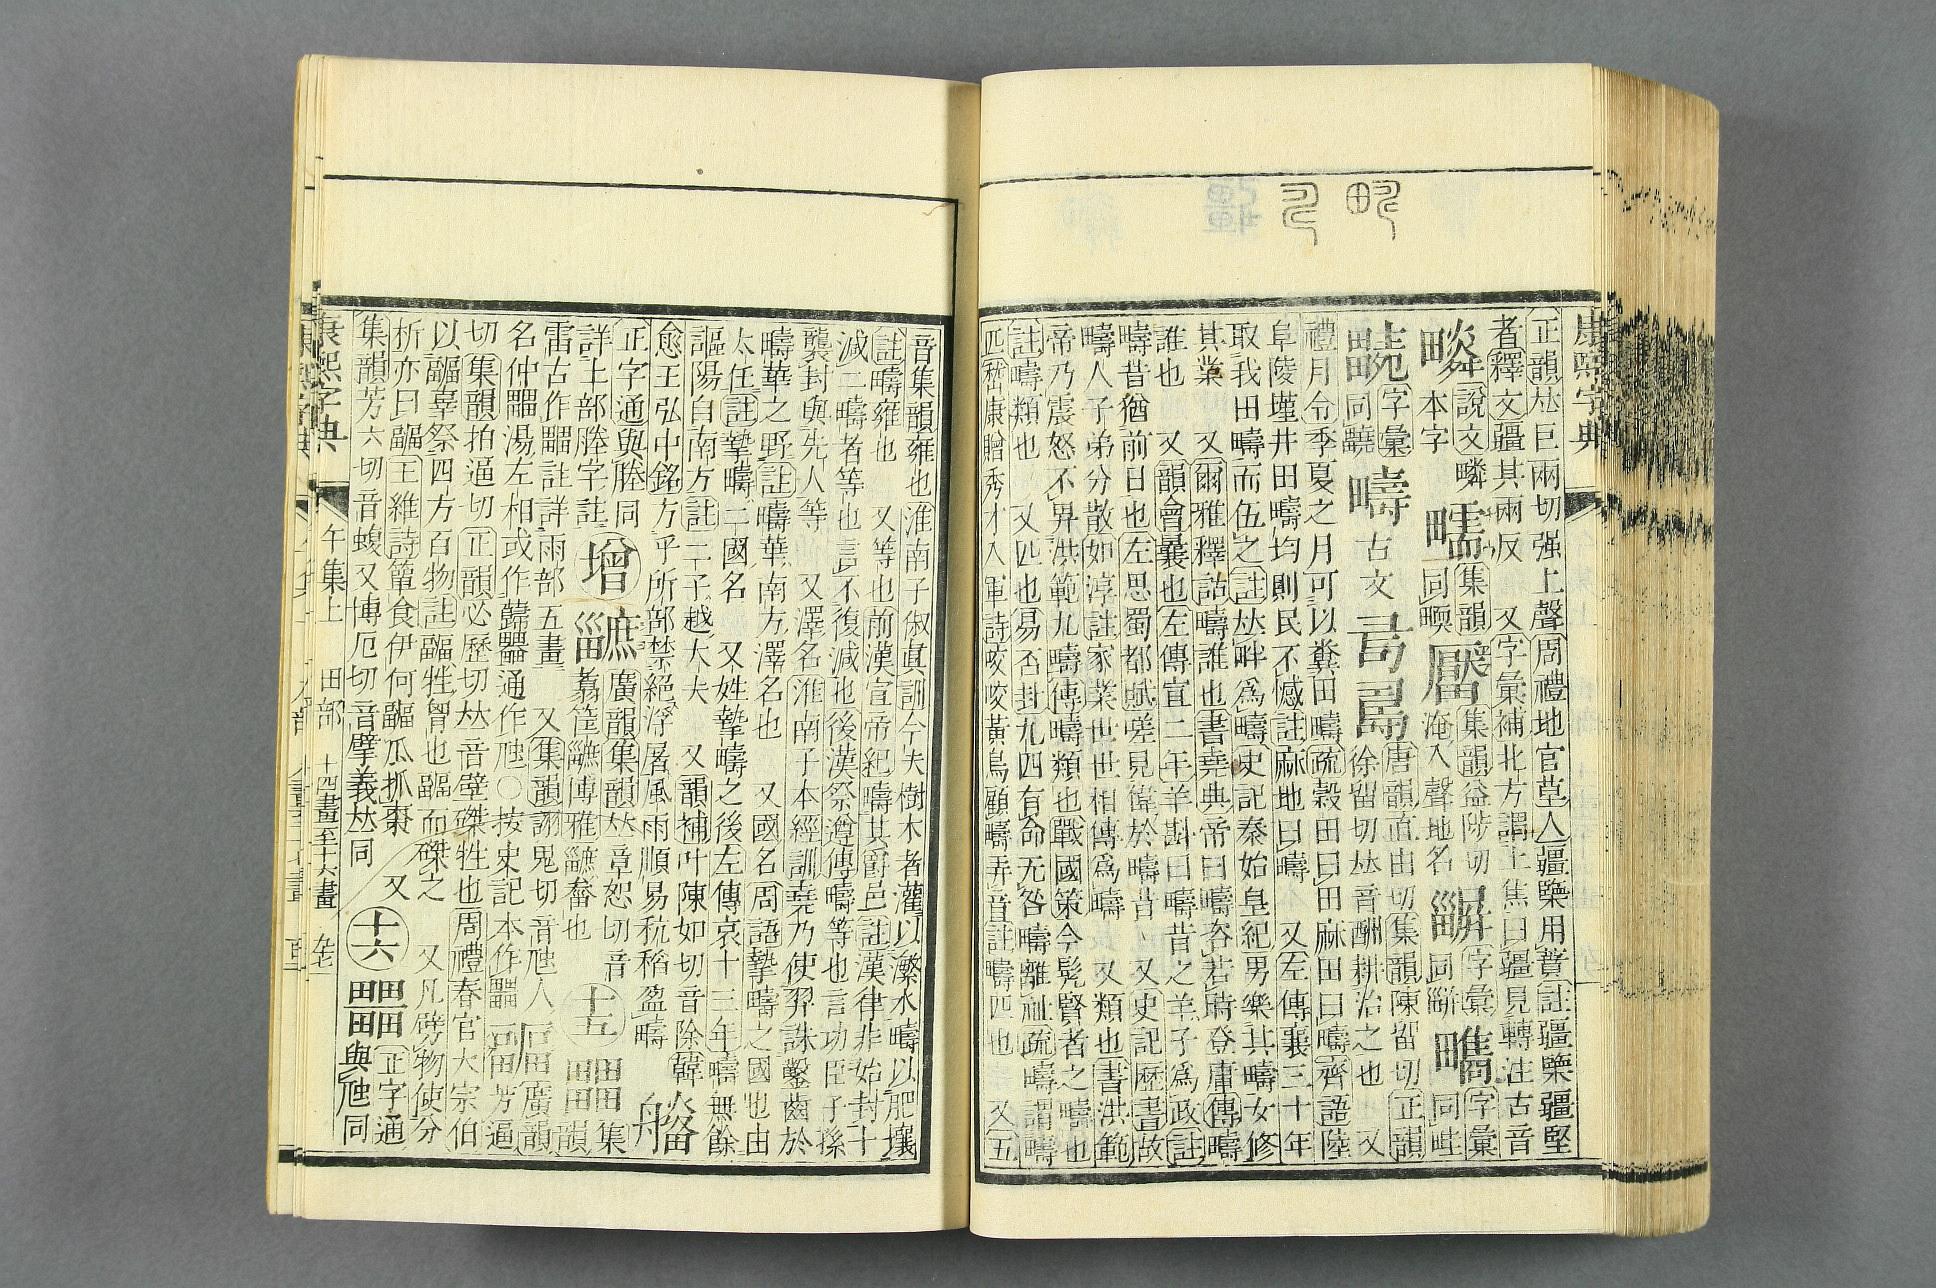 康熙字典
正韻𠀤巨兩切强上聲周禮地官草人疆㯺用蕡註疆㯺疆堅
者釋文疆其兩反 又字彙補北方謂土焦曰疆見轉注古音
本字 說文 同畷 集韻 集韻益涉切淹入聲地名 字彙同 字彙同畦
字彙同 疇 古文 唐韻直由切集韻陳留切正韻徐留切𠀤音酬耕治之也 又
禮月令季夏之月可以糞田疇疏穀田曰田麻田曰疇齊語陸
阜陵墐井田疇均則民不憾註麻地曰疇 又左傳襄三十年
取我田疇而伍之註𠀤畔爲疇史記秦始皇紀男樂其疇女修
其業 又爾雅釋詁疇誰也書堯典帝曰疇咨若時登庸傳疇
誰也 又韻會曩也左傳宣二年羊斟曰疇昔之羊子爲政註
疇昔猶前日也左思蜀都賦嗟見偉於疇昔 又史記歷書故
疇人子弟分散如淳註家業世世相傳爲疇 又類也書洪範
帝乃震怒不畀洪範九疇傳疇類也戰國策今髡賢者之疇也
註疇類也 又匹也易否封九四有命无咎疇離祉疏疇謂疇
匹嵇康贈秀才入軍詩咬咬黃鳥顧疇弄音註疇匹也 又五
音集韻雍也淮南子俶眞訓今夫樹木者灌以瀿水疇以肥壤
註疇雍也 又等也前漢宣帝紀疇其爵邑註漢律非始封十
減二疇者等也言不復減也後漢祭遵傳疇等也言功臣子孫
襲封與先人等 又澤名淮南子本經訓堯乃使羿誅鑿齒於
疇華之野註疇華南方澤名也 又國名周語摯疇之國也由
太任註摯疇二國名 又姓摯疇之後左傳哀十三年疇無餘
謳陽自南方註二子越大夫 又韻補叶陳如切音除韓
愈王弘中銘方乎所部禁絕浮屠風雨順易秔稻盈疇
正字通與塍同詳土部塍字註 增 廣韻集韻𠀤章恕切音翥筐 博雅 畚也 十五 集韻
雷古作畾註詳雨部五畫 又集韻詡鬼切音虺人 廣韻
名仲畾湯左相或作 通作虺○按史記本作 畐 芳逼
切集韻拍逼切正韻必歷切𠀤音壁磔牲也周禮春官大宗伯
以疈辜祭四方百物註疈牲胷也疈而磔之 又凡劈物使分
析亦曰疈王維詩簞食伊何疈瓜抓棗 又
集韻芳六切音蝮又博厄切音擘義𠀤同 十六 正字通與虺同
康熙字典 午集上 田部 十四畫至十六畫